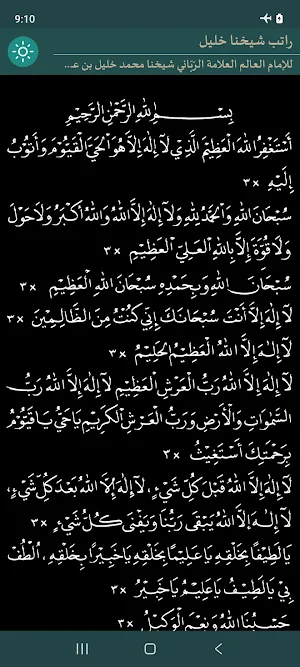 9:10
راتب شيخنا خليل
للإمام العالم العلامة الرّبّاني شيخنا محمد خليل بن عـ...
بِسْمِ اللهِ الرَّحْمٰنِ الرَّحِيْمِ
أَسْتَغْفِرُ اللهَ الْعَظِيْمَ الَّذِيْ لَآ إِلٰهَ إِلَّا هُوَ الْحَيَّ الْقَيُّوْمَ وَأَتُوْبُ
إِلَيْهِ ×٣
سُبْحَانَ اللهِ وَالْحَمْدُ لِلّٰهِ وَلَآ إِلٰهَ إِلَّا اللهُ وَاللهُ أَكْبَرُ وَلَا حَوْلَ
وَلَا قُوَّةَ إِلَّا بِاللهِ الْعَلِيِّ الْعَظِيْمِ ×٣
سُبْحَانَ اللهِ وَبِحَمْدِهِ سُبْحَانَ اللهِ الْعَظِيْمِ ×٣
لَآ إِلٰهَ إِلَّا أَنْتَ سُبْحَانَكَ إِنِّي كُنْتُ مِنَ الظَّالِمِيْنَ ×٣
لَآ إِلٰهَ إِلَّا اللهُ الْعَظِيْمُ الْحَلِيْمُ ×٣
لَآ إِلٰهَ إِلَّا اللهُ رَبُّ الْعَرْشِ الْعَظِيْمِ لَآ إِلٰهَ إِلَّا اللهُ رَبُّ
السَّمٰوَاتِ وَالْأَرْضِ وَرَبُّ الْعَرْشِ الْكَرِيْمِ يَا حَيُّ يَا قَيُّوْمُ
بِرَحْمَتِكَ أَسْتَغِيْثُ ×٣
لَآ إِلٰهَ إِلَّا اللهُ قَبْلَ كُلِّ شَيْءٍ، لَآ إِلٰهَ إِلَّا اللهُ بَعْدَ كُلِّ شَيْءٍ،
لَآ إِلٰهَ إِلَّا اللهُ يَبْقَى رَبُّنَا وَيَفْنَى كُلُّ شَيْءٍ ×٣
يَا لَطِيْفًا بِخَلْقِهِ يَا عَلِيْمًا بِخَلْقِهِ يَا خَبِيْرًا بِخَلْقِهِ، اُلْطُفْ
بِيْ يَا لَطِيْفُ يَا عَلِيْمُ يَا خَبِيْرُ ×٣
حَسْبُنَا اللهُ وَنِعْمَ الْوَكِيْلُ ×٣